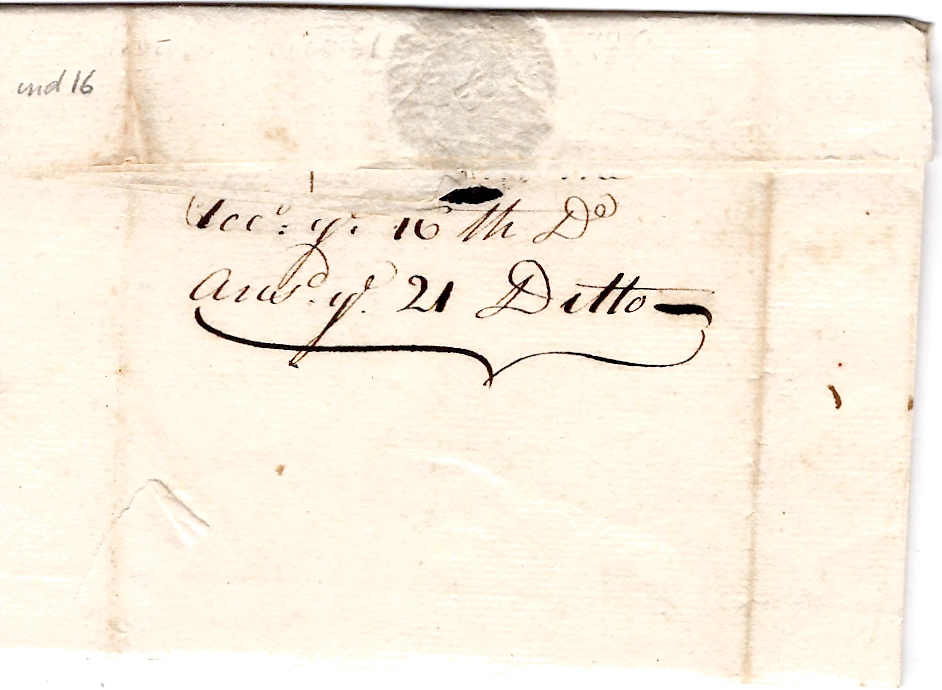 ind 16
Recd. ye. 16th Do
Ansd. ye. 21 Ditto